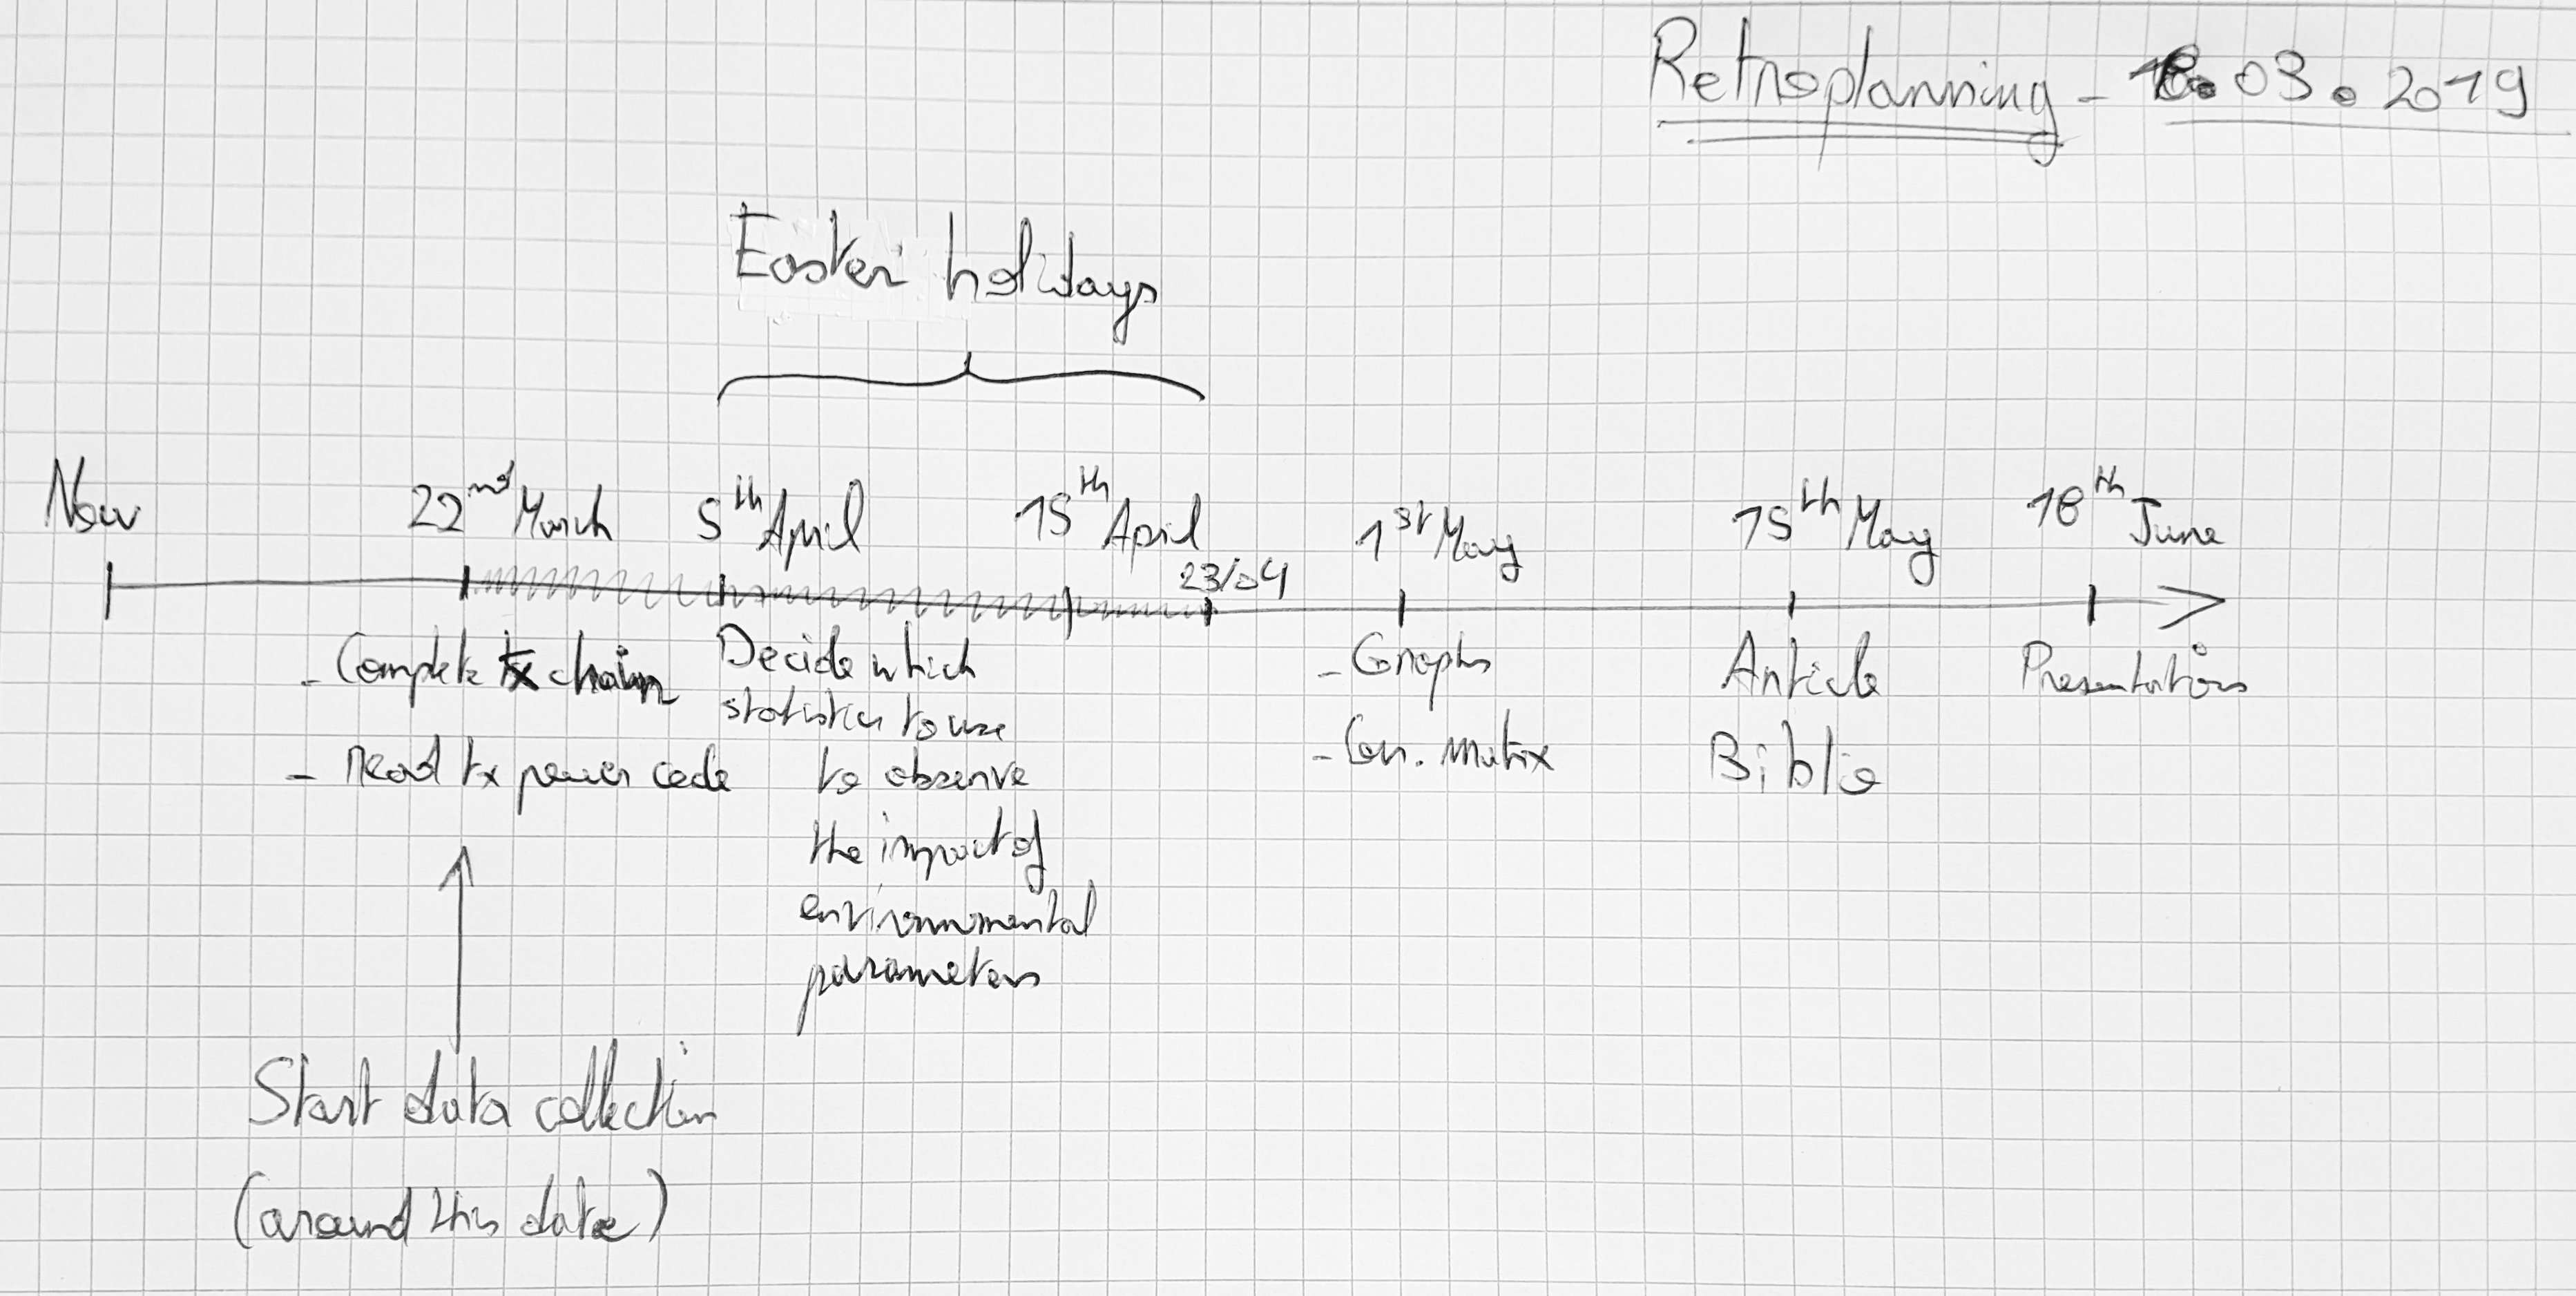 Retroplanning - 18.03.2019
Easter holidays
Now
22nd March
5th April
15th April
23/04
1st May
15th May
18th June
- Complete tx chain
- read tx power code
Decide which
statistics to use
to observe
the impact of
environnemental
parameters
- Graphs
- Corr. matrix
Article
Biblio
Presentation
Start data collection
(around this date)